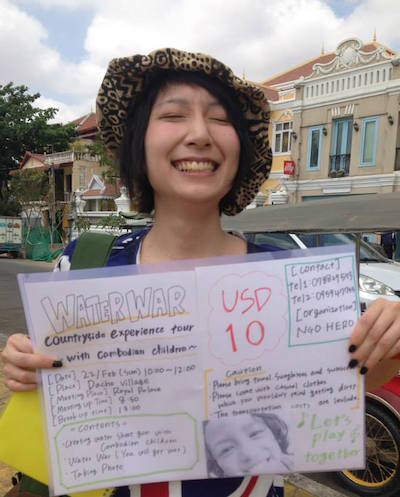 WATER WAR
countryside experience tour
~ with Cambodian children ~
[Date] 22/Feb (sun) 10:00~12:00
[Place] Dacho village
[Meeting Place] Royal Palace
[Meeting up Time] 8:50
[Break up time] 13:00
Contents
・Creating water shot gun with
Cambodian children
・Water War (You will get wet)
・Taking Photo
USD
10
[Contact]
Tel1:
Tel2:
[Organization]
NGO HERO
Caution
Please bring towel, sunglasses and
Please come with casual clothes
which you wouldn't mind getting dirty
The transportation costs are include
Let's
play
together